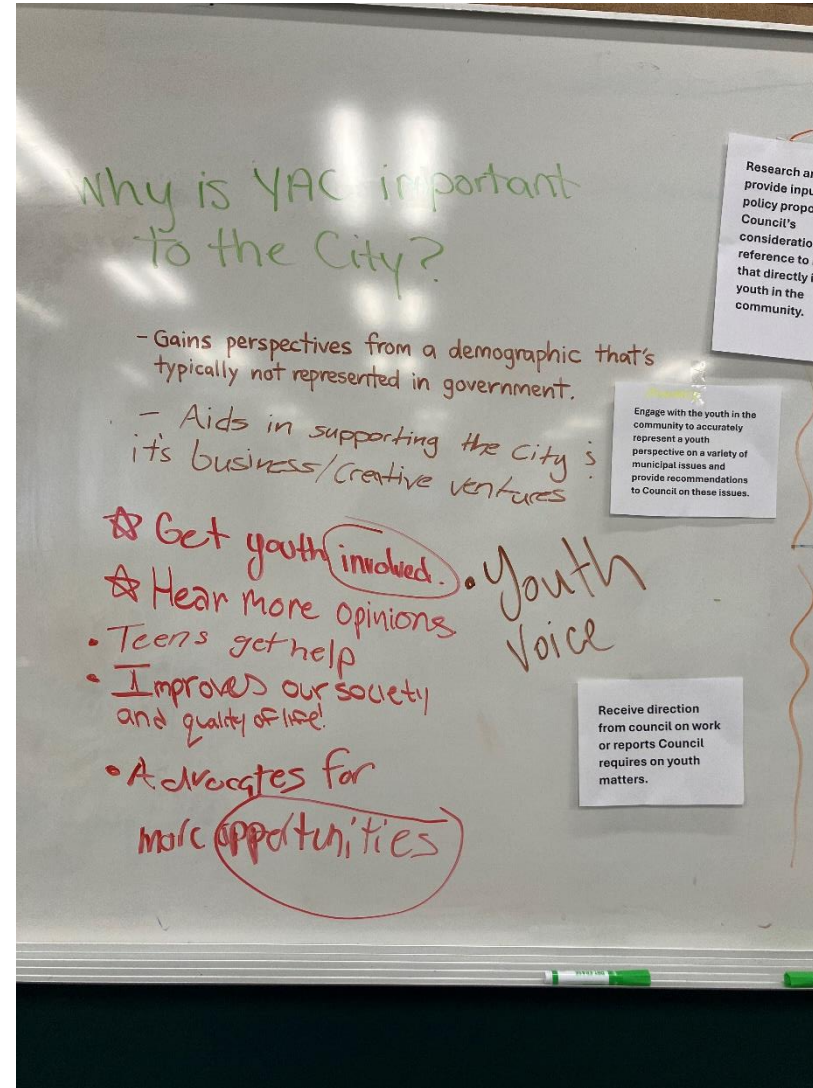 Why is YAC important
to the City?
- Gains perspectives from a demographic that's
typically not represented in government.
- Aids in supporting the City &
it's business/creative ventures
☆ Get youth involved.
☆ Hear more opinions
• Teens get help
• Improves our society
and quality of life!
• Advocates for
more opportunities
• Youth
Voice
Research
provide
policy
Council's
reference to
that directly
youth in the
community.
Engage with the youth in the
community to accurately
represent a youth
perspective on a variety of
municipal issues and
provide recommendations
to Council on these issues.
Receive direction
from council on work
or reports Council
requires on youth
matters.